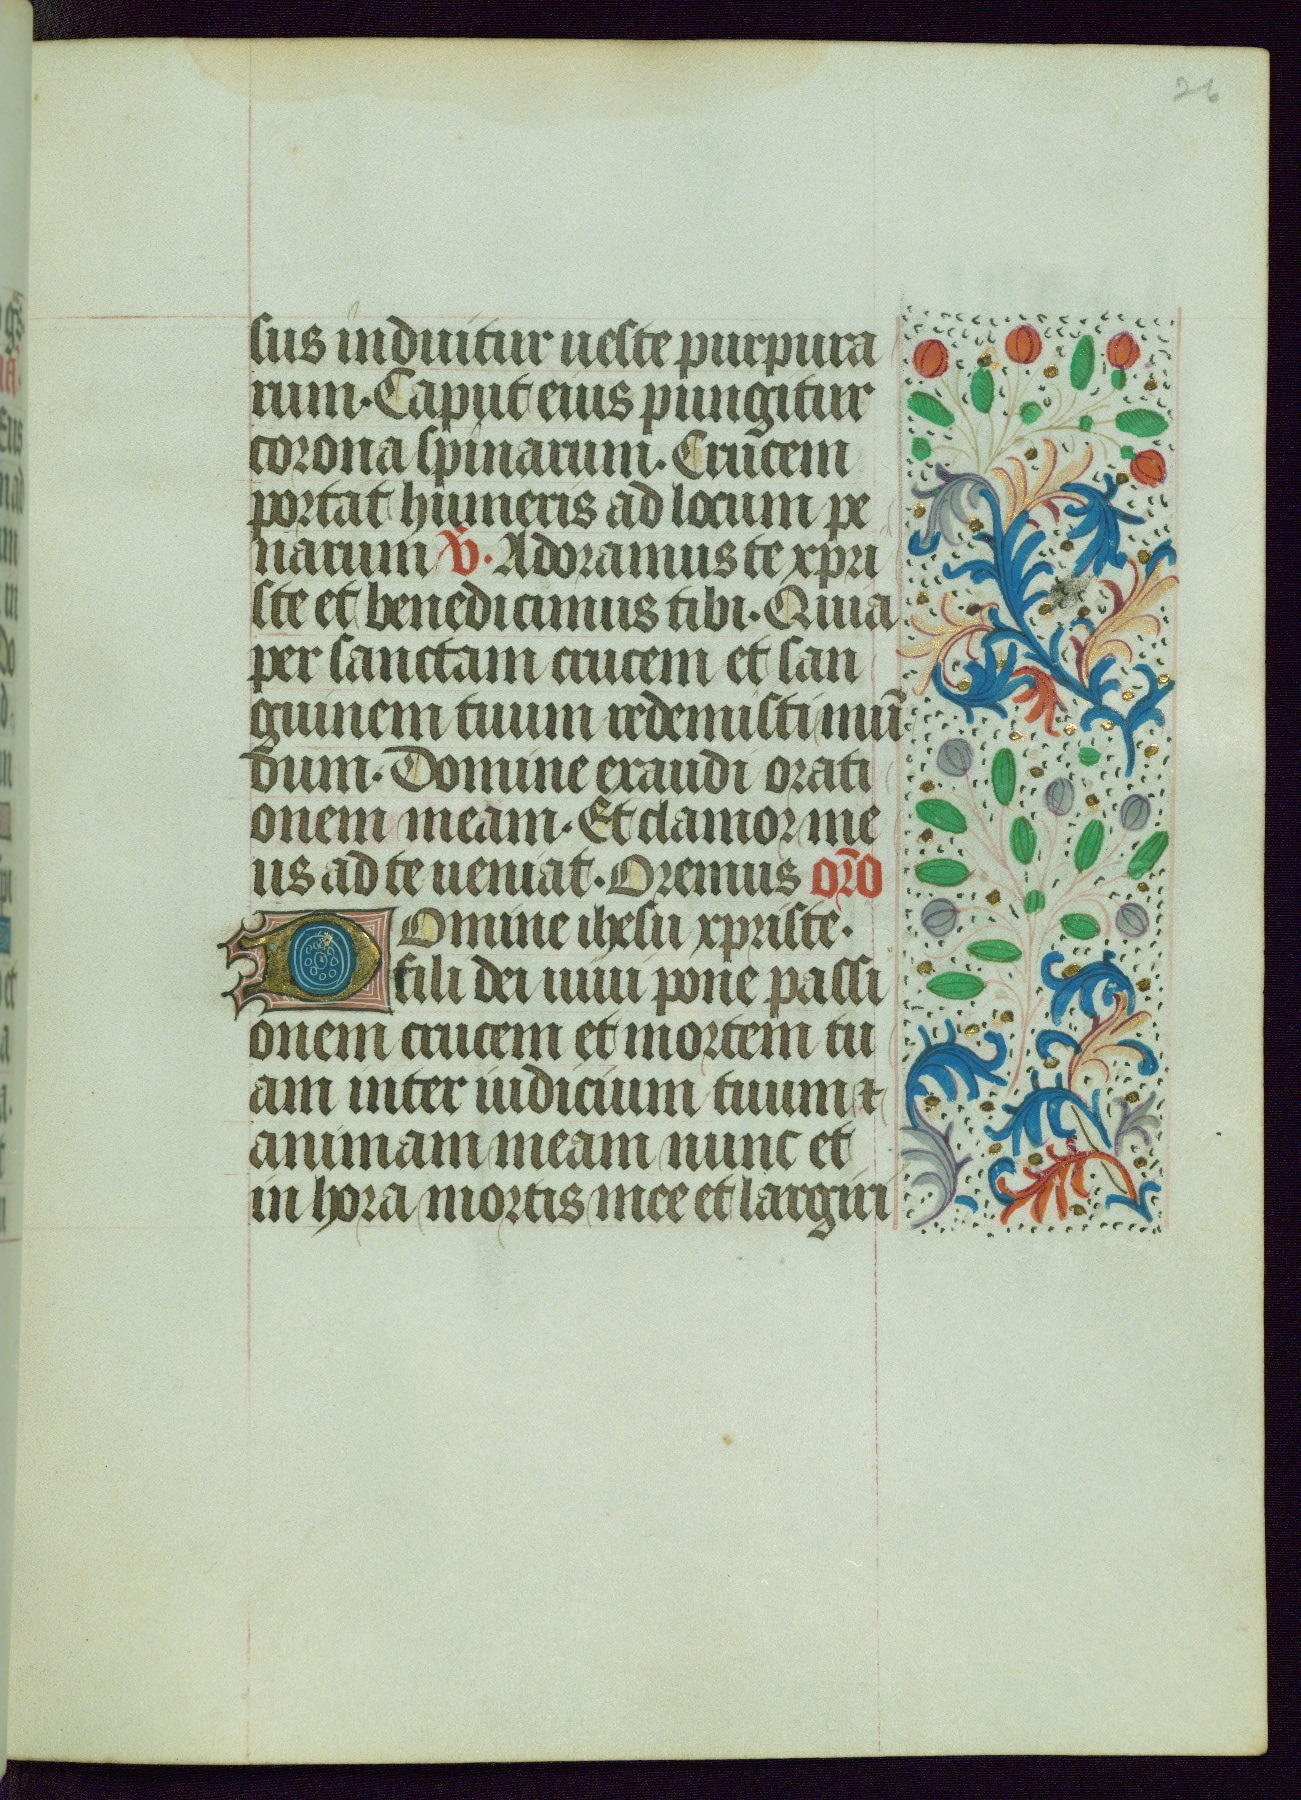 26
sus induitur ueste purpura
rum. Caput eius pungitur
corona spinarum. Crucem
portat humeris ad locum pe
narum v̄. Adoramus te xpri
ste et benedicimus tibi. Quia
per sanctam crucem et san
guinem tuum redemisti mun̄
dum. Domine exaudi orati
onem meam. Et clamor me
us ad te ueniat. Oremus or̄o
DOmine ihesu xpriste.
fili dei uiui pone passi
onem crucem et mortem tu
am inter iudicium tuum ⁊
animam meam nunc et
in hora mortis mee et largiri